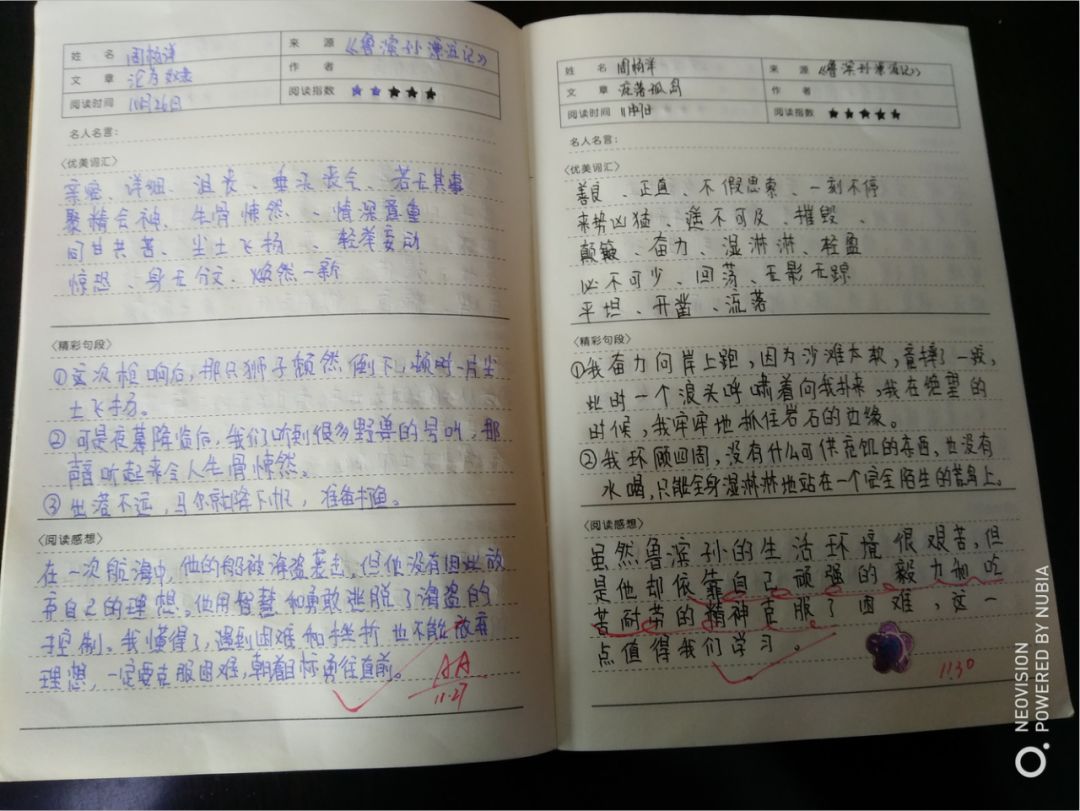 姓 名 周杨洋 来 源 《鲁滨孙漂流记》
文 章 沦为奴隶 作 者
阅读时间 11月26日 阅读指数 ★★★★★
名人名言：
〈优美词汇〉
亲密、详细、沮丧、垂头丧气、若无其事
聚精会神、毛骨悚然、、情深意重
同甘共苦、尘土飞扬、轻举妄动
惊恐、身无分文、焕然一新
〈精彩句段〉
①这次枪响后，那只狮子颓然倒下，顿时一片尘
土飞扬。
②可是夜幕降临后，我们听到很多野兽的号叫，那
声音听起来令人毛骨悚然。
③出港不远，马尔就降下帆，准备捕鱼。
〈阅读感想〉
在一次航海中，他的船被海盗袭击，但他没有因此放
弃自己的理想，他用智慧和勇敢逃脱了海盗的
控制。我懂得了，遇到困难和挫折也不能放弃
理想，一定要克服困难，朝着目标勇往直前。
AA
11.27
姓 名 周杨洋 来 源 《鲁滨孙漂流记》
文 章 流落孤岛 作 者
阅读时间 阅读指数 ★★★★★
名人名言：
〈优美词汇〉
善良、正直、不假思索、一刻不停
来势凶猛、遥不可及、摧毁、
颠簸、奋力、湿淋淋、轻盈
必不可少、回荡、无影无踪
平坦、开凿、流落
〈精彩句段〉
①我奋力向岸上跑，因为沙滩太软，竟摔了一跤，
此时一个浪头呼啸着向我扑来，我在绝望的
时候，我牢牢地抓住岩石的边缘。
②我环顾四周，没有什么可供充饥的东西，也没有
水喝，只能全身湿淋淋地站在一个完全陌生的荒岛上。
〈阅读感想〉
虽然鲁滨孙的生活环境很艰苦，但
是他却依靠自己顽强的毅力和吃
苦耐劳的精神克服了困难，这一
点值得我们学习。
11.30
NEOVISION
POWERED BY NUBIA